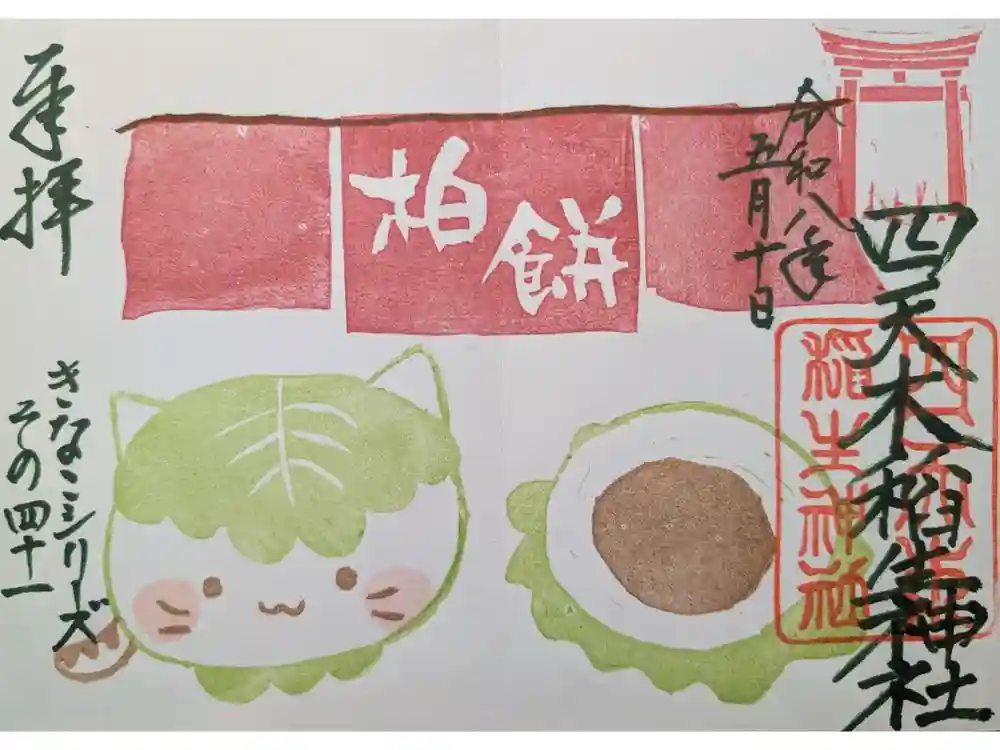 四天木稲生神社
令和八年
五月十日
柏餅
奉拝
きなこシリーズ
その四十一
四天木
稲生神社